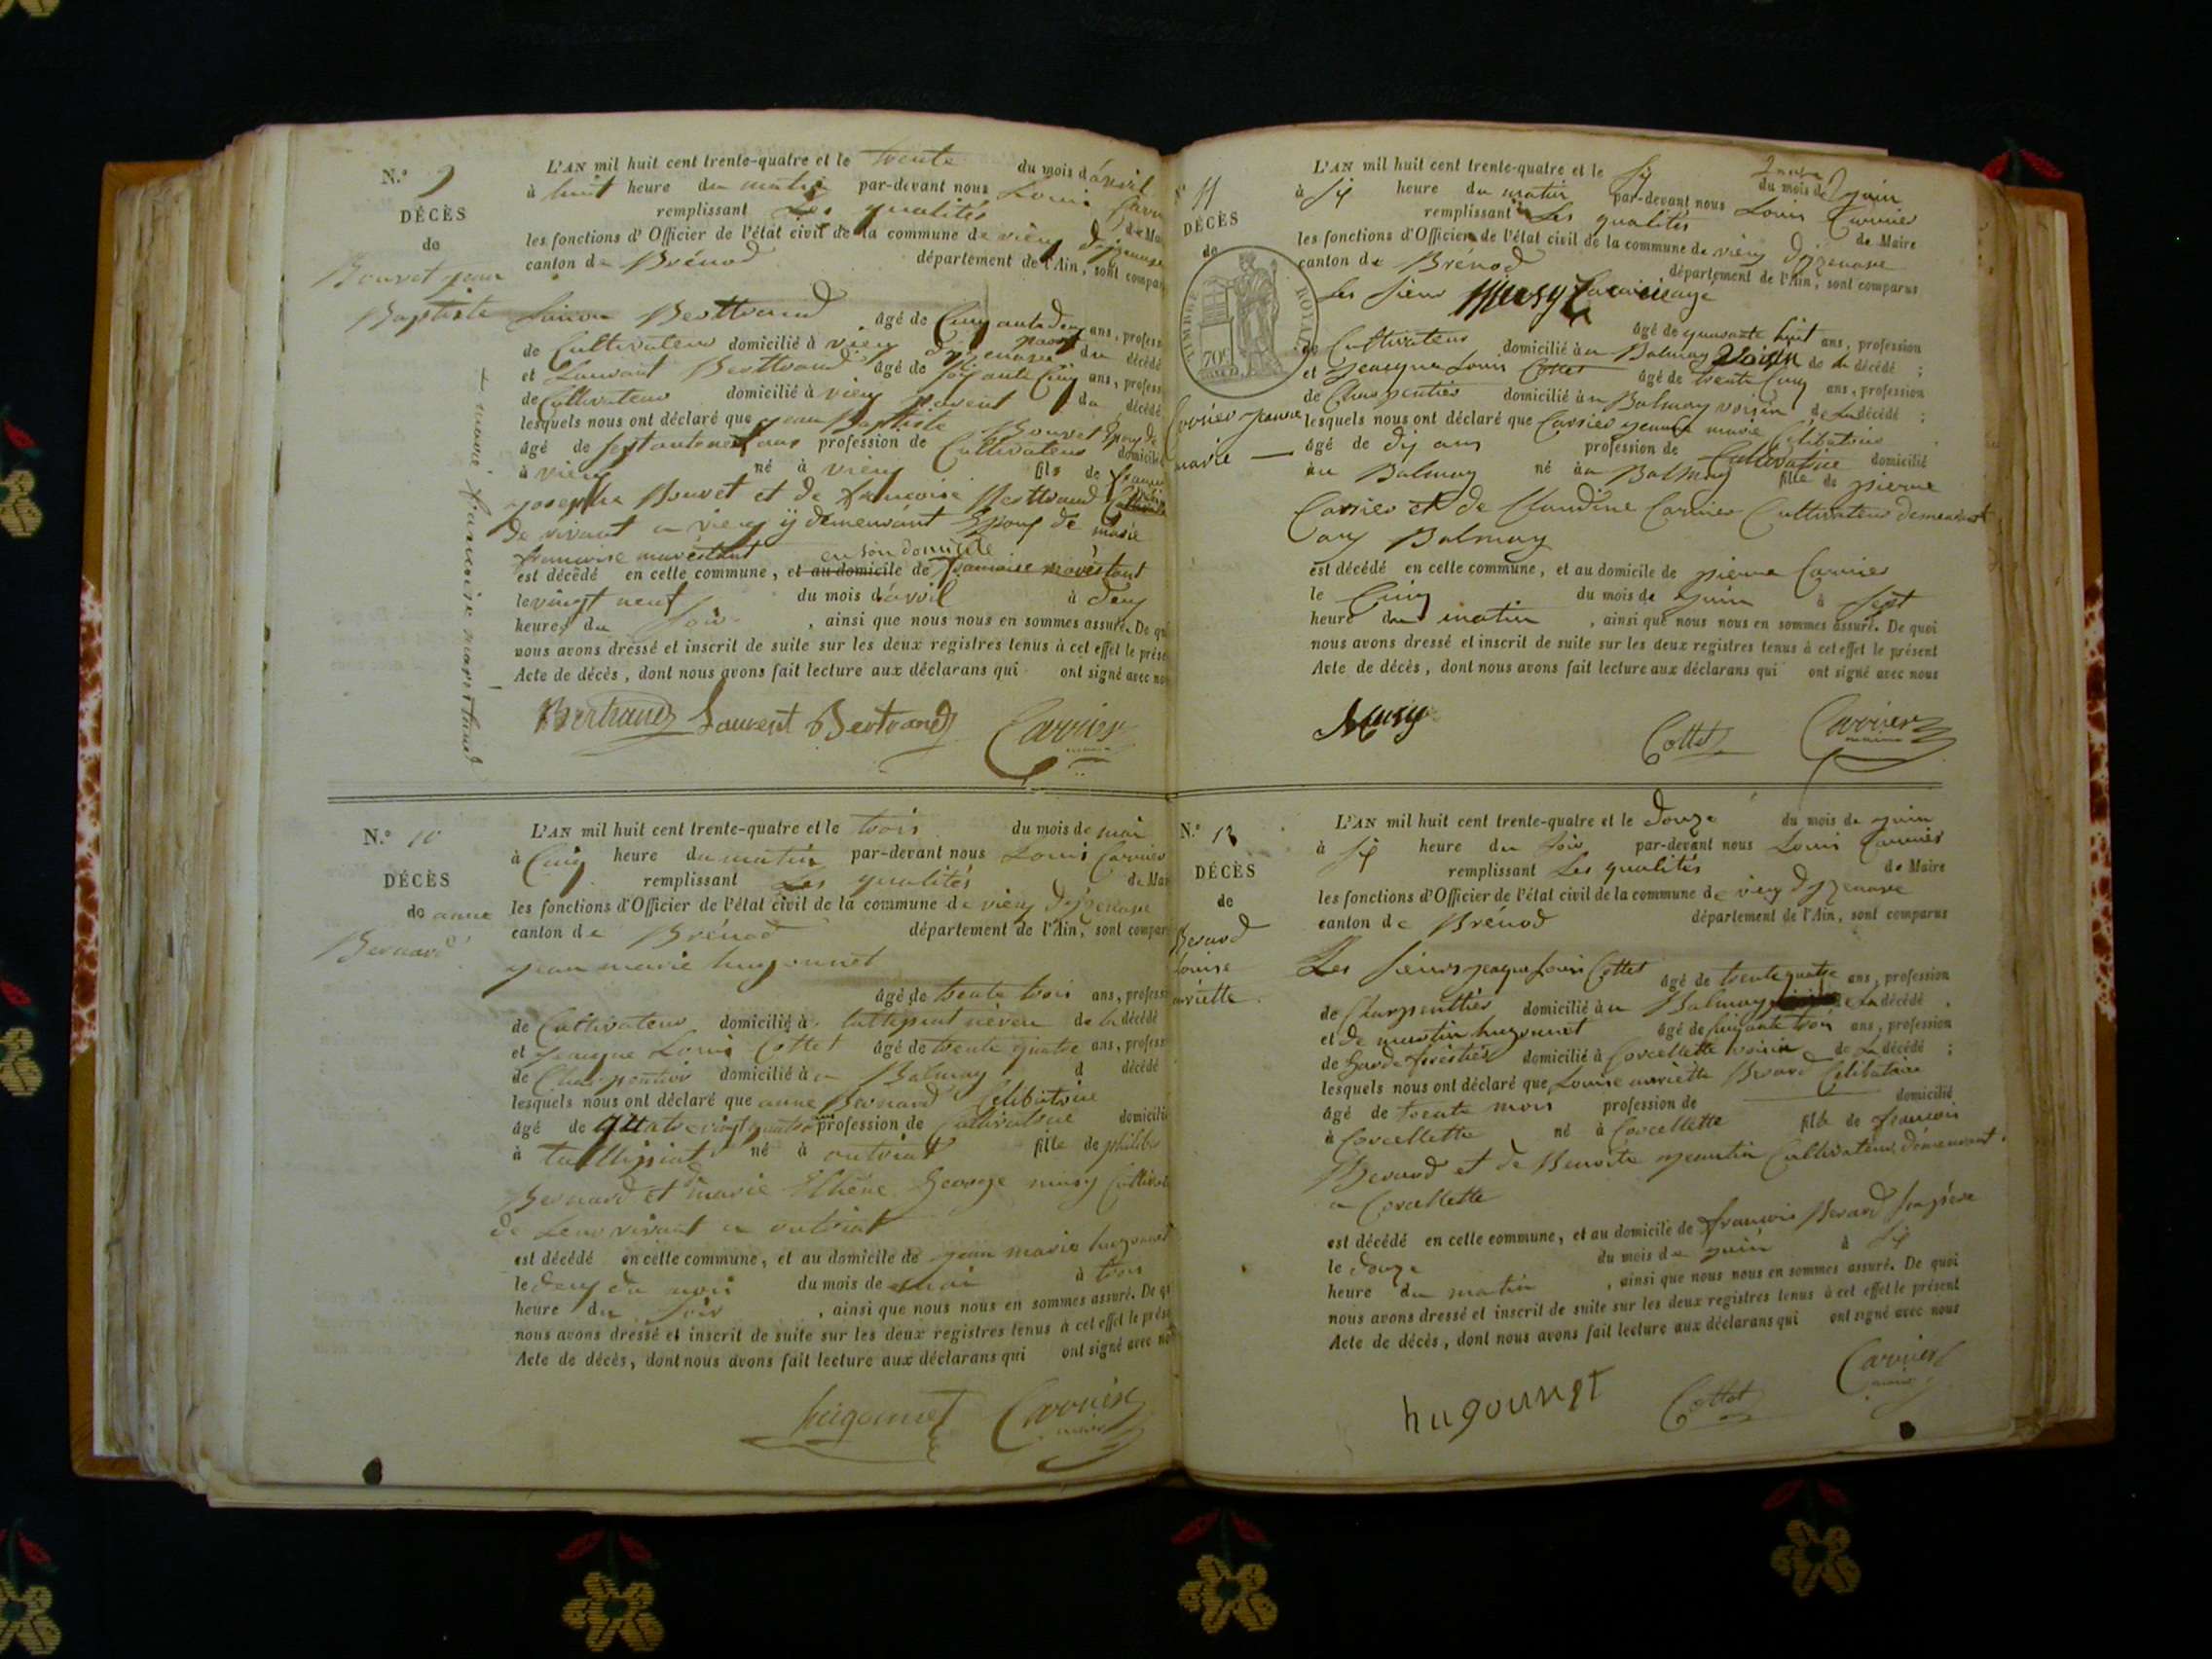 N.° 9
DÉCÈS
de
Bouvet jean
Baptiste
L'AN mil huit cent trente-quatre et le trente du mois d'avril
à huit heure du matin par-devant nous Louis Carri
remplissant Les qualités de Ma
les fonctions d'Officier de l'état civil de la commune de vieu d'izenave
canton de Brénod département de l'Ain, sont compar
Simon Berttrand âgé de Cinquante deux ans, profess
de Cultivateur domicilié à vieu d'izenave parent du décédé
et Laurant Berttrand âgé de soixante Cinq ans, profess
de Cultivateur domicilié à vieu parent du décédé
lesquels nous ont déclaré que jean Baptiste Bouvet Epoux de
âgé de septante neuf ans profession de Cultivateur domicilié
à vieu né à vieu fils de
josephe Bouvet et de francoise Berttrand
de vivant a vieu ij demeurant Epoux de marie
francoise
en son domicile
est décédé en cette commune, et au domicile de francoise
le vingt neuf du mois d'avril à deux
heures du soir, ainsi que nous nous en sommes assuré. De qu
nous avons dressé et inscrit de suite sur les deux registres tenus à cet effet le prése
Acte de décès, dont nous avons fait lecture aux déclarans qui ont signé avec no
Bertrand Laurent Bertrand Carrier
maire
N.° 10
DÉCÈS
de anne
Bernard
L'AN mil huit cent trente-quatre et le trois du mois de mai
à Cinq heure du matin par-devant nous Louis Carrier
remplissant Les qualités de Mai
les fonctions d'Officier de l'état civil de la commune de vieu d'izenave
canton de Brénod département de l'Ain, sont compar
jean marie hugonnet
âgé de trente trois ans, profess
de Cultivateur domicilié à neveu de la décédé
et jacque Louis Cottet âgé de trente quatre ans, profess
de Charpentier domicilié à a Balmay d décédé
lesquels nous ont déclaré que anne Bernard Celibataire
âgé de Quatre vingt quatre ans profession de Cultivatrice domicilié
à né à outriat fille de philiber
Bernard et de marie George
de Leur vivant a outriat
est décédé en cette commune, et au domicile de jean marie hugonnet
le deux du mois du mois de mai à trois
heure du soir, ainsi que nous nous en sommes assuré. De qu
nous avons dressé et inscrit de suite sur les deux registres tenus à cet effet le prése
Acte de décès, dont nous avons fait lecture aux déclarans qui ont signé avec no
hugonnet Carrier
maire
N.° 11
DÉCÈS
de
TIMBRE ROYAL
70c
Carrier jeanne
marie
L'AN mil huit cent trente-quatre et le six du mois de juin
à six heure du matin par-devant nous Louis Carrier
remplissant Les qualités de Maire
les fonctions d'Officier de l'état civil de la commune de vieu d'izenave
canton de Brenod département de l'Ain, sont comparus
Les sieur
âgé de quarante huit ans, profession
de Cultivateur domicilié à u Balmay Voisin de la décédé ;
et jeacque Louis Cottet âgé de trente Cinq ans, profession
de Charpentier domicilié à u Balmay voisin de la décédé ;
lesquels nous ont déclaré que Carrier jeanne marie Célibataire
âgé de dix ans profession de Cultivatrice domicilié
au Balmay né à u Balmay fille de pierre
Carrier et de Claudine Carrier Cultivateur demeurant
aux Balmay
est décédé en cette commune, et au domicile de pierre Carrier
le Cinq du mois de juin à sept
heure du matin, ainsi que nous nous en sommes assuré. De quoi
nous avons dressé et inscrit de suite sur les deux registres tenus à cet effet le présent
Acte de décès, dont nous avons fait lecture aux déclarans qui ont signé avec nous
Cottet Carrier
maire
N.° 12
DÉCÈS
de
Berard
Louise
L'AN mil huit cent trente-quatre et le douze du mois de juin
à six heure du soir par-devant nous Louis Carrier
remplissant Les qualités de Maire
les fonctions d'Officier de l'état civil de la commune de vieu d'izenave
canton de Brénod département de l'Ain, sont comparus
Les sieurs jeaque Louis Cottet âgé de trente quatre ans, profession
de Charpenttier domicilié à u Balmay de la décédé
et de martin hugonnet âgé de Cinquante trois ans, profession
de Garde forestier domicilié à Corcellette voisin de la décédé ;
lesquels nous ont déclaré que Louise Berard Célibataire
âgé de trente mois profession de domicilié
à Corcellette né à Corcellette fille de francois
Berard et de Benoite Cultivateur demeurant
a Corcellette
est décédé en cette commune, et au domicile de francois Berard son père
le douze du mois de juin à six
heure du matin, ainsi que nous nous en sommes assuré. De quoi
nous avons dressé et inscrit de suite sur les deux registres tenus à cet effet le présent
Acte de décès, dont nous avons fait lecture aux déclarans qui ont signé avec nous
hugounet Cottet Carrier
maire